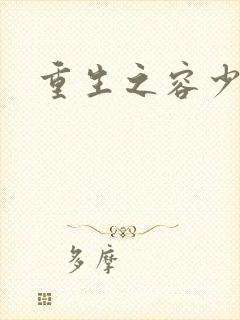 重生之容少
多摩